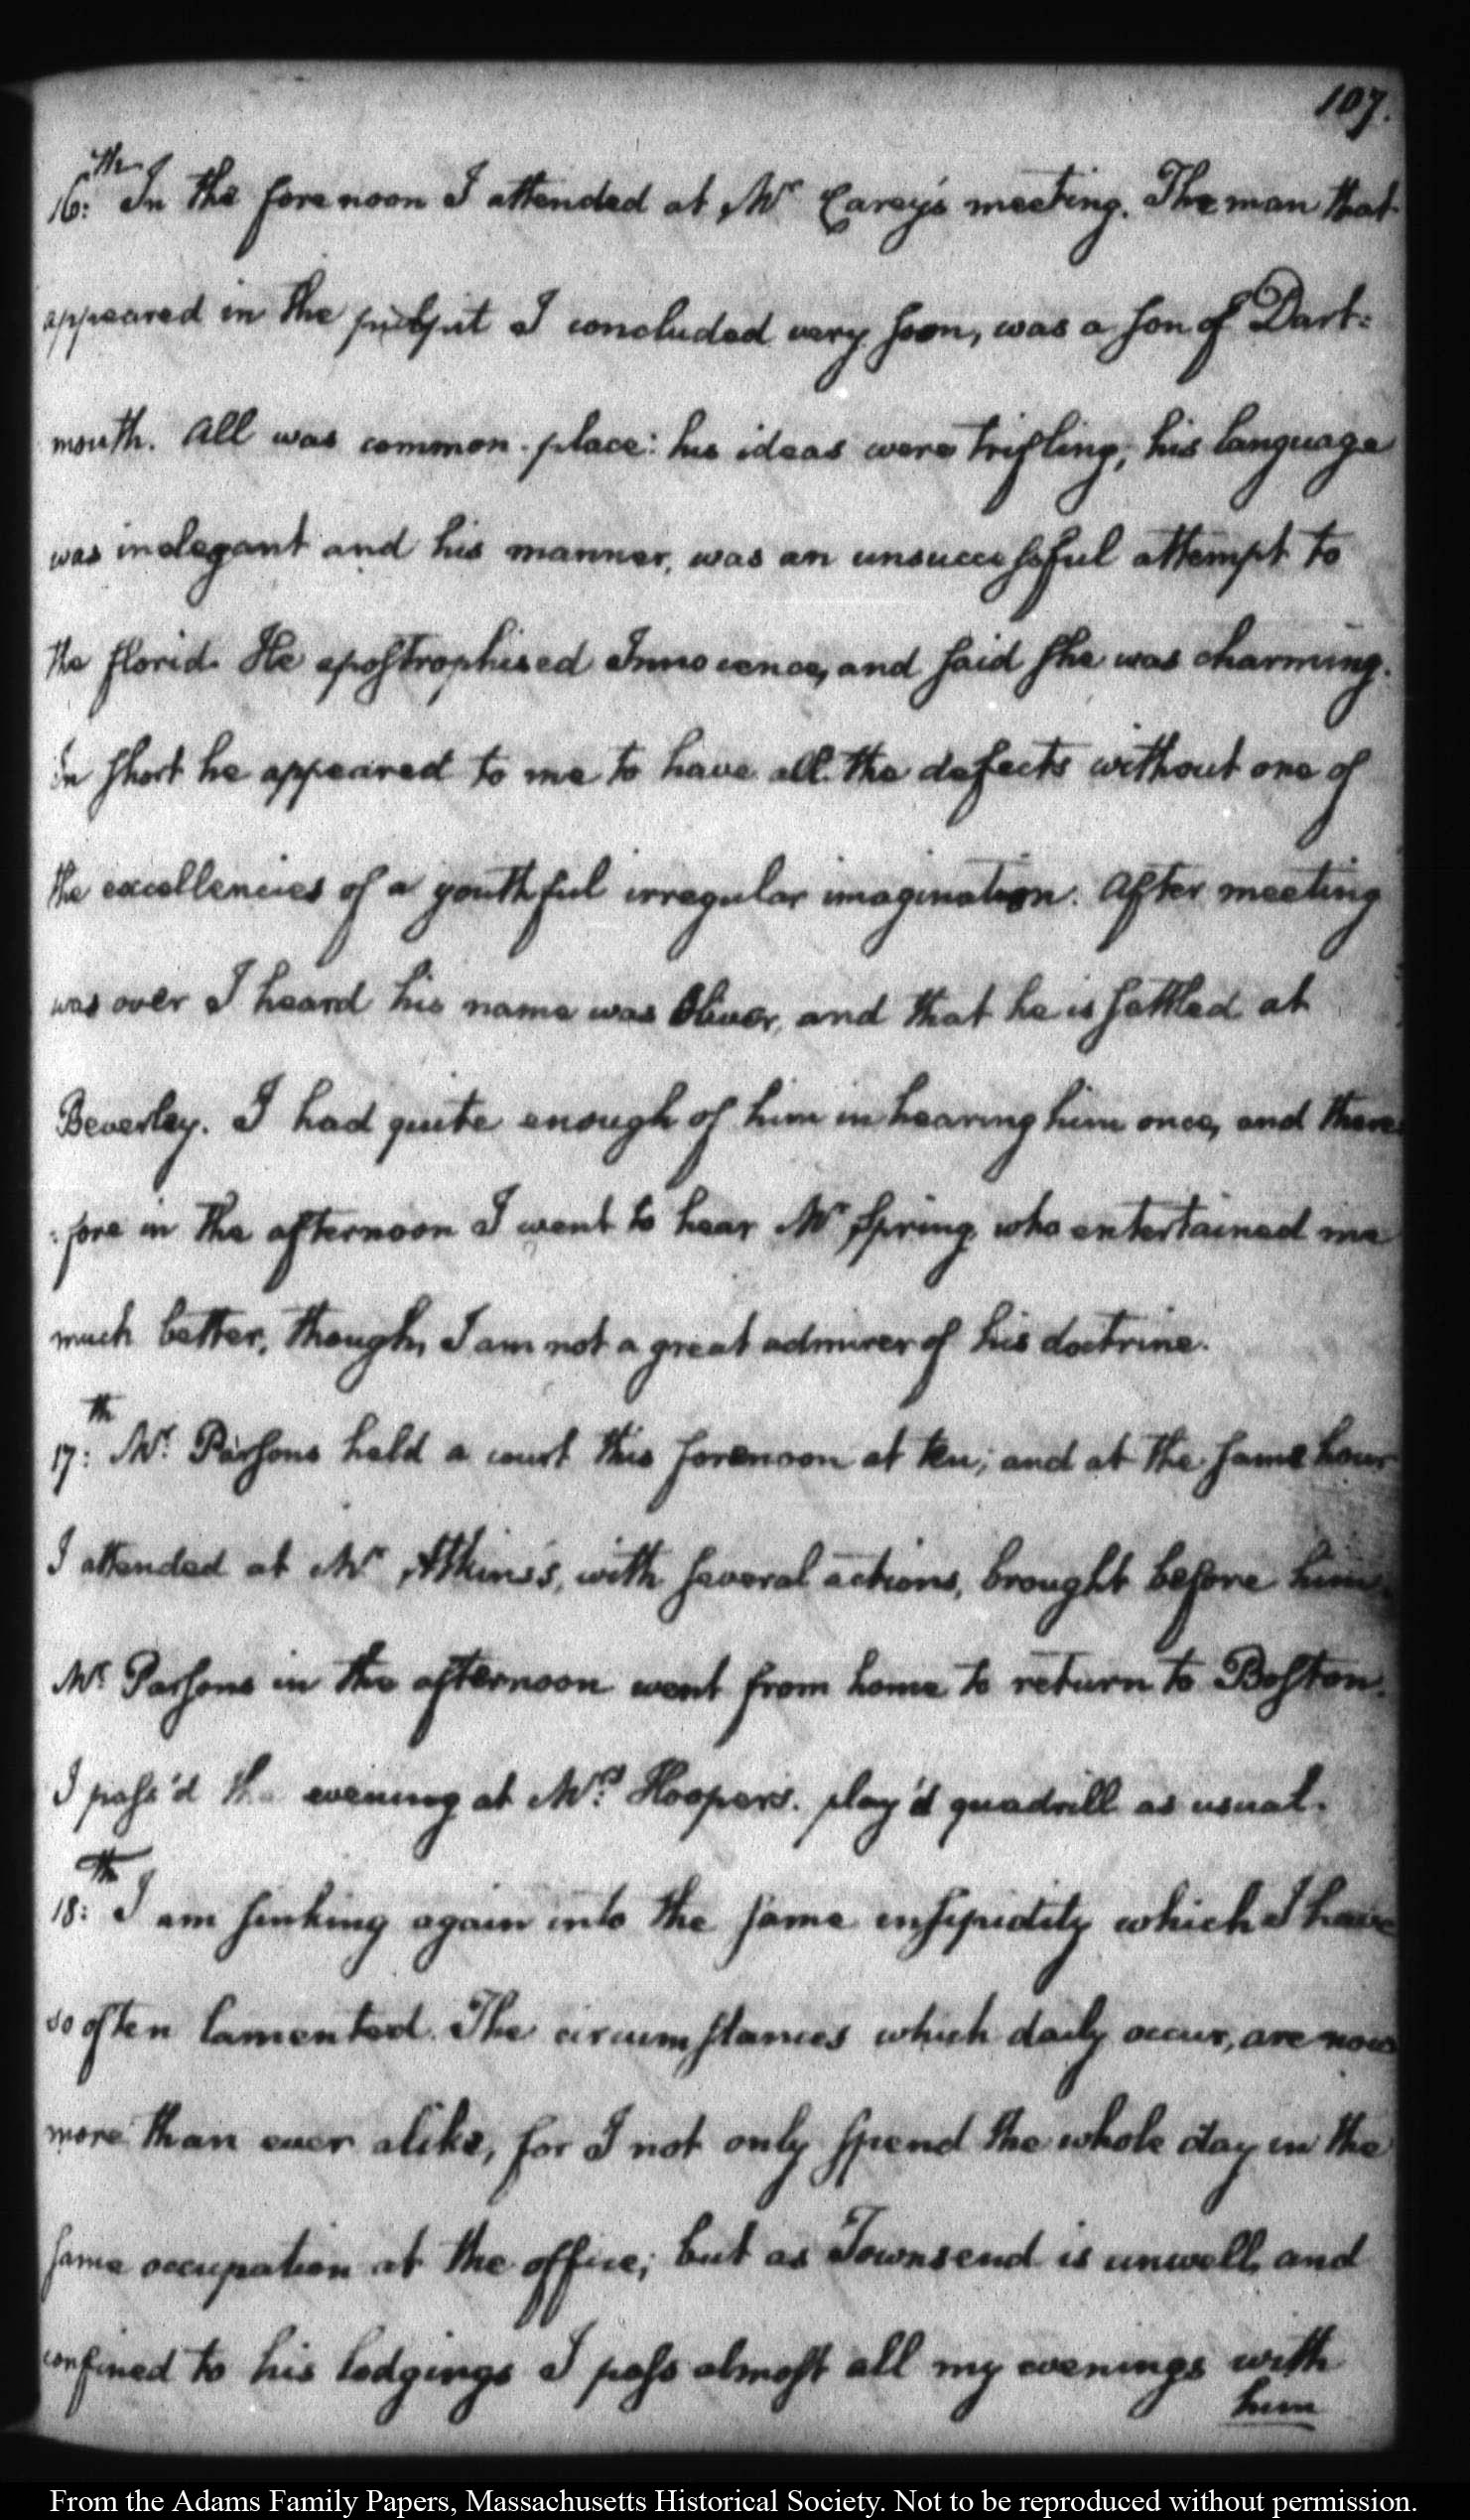 107.
16:th In the forenoon I attended at Mr Carey's meeting. The man that
appeared in the pulpit I concluded very soon, was a son of Dart=
mouth. All was common-place: his ideas were trifling; his language
was inelegant and his manner, was an unsuccessful attempt to
the florid. He apostrophised Innocence, and said she was charming.
In short he appeared to me to have all the defects without one of
the excellencies of a youthful irregular imagination. After meeting
was over I heard his name was Oliver, and that he is settled at
Beverley. I had quite enough of him in hearing him once, and there=
=fore in the afternoon I went to hear Mr Spring, who entertained me
much better, though, I am not a great admirer of his doctrine.
17:th Mr. Parsons held a court this forenoon at ten; and at the same hour
I attended at Mr Atkins's, with several actions, brought before him.
Mr. Parsons in the afternoon went from home to return to Boston.
I pass'd the evening at Mrs. Hooper's. play'd quadrill as usual.
18:th I am sinking again into the same insipidity which I have
so often lamented. The circumstances which daily occur, are now
more than ever alike, for I not only spend the whole day in the
same occupation at the office; but as Townsend is unwell, and
confined to his lodgings I pass almost all my evenings with
him
From the Adams Family Papers, Massachusetts Historical Society. Not to be reproduced without permission.